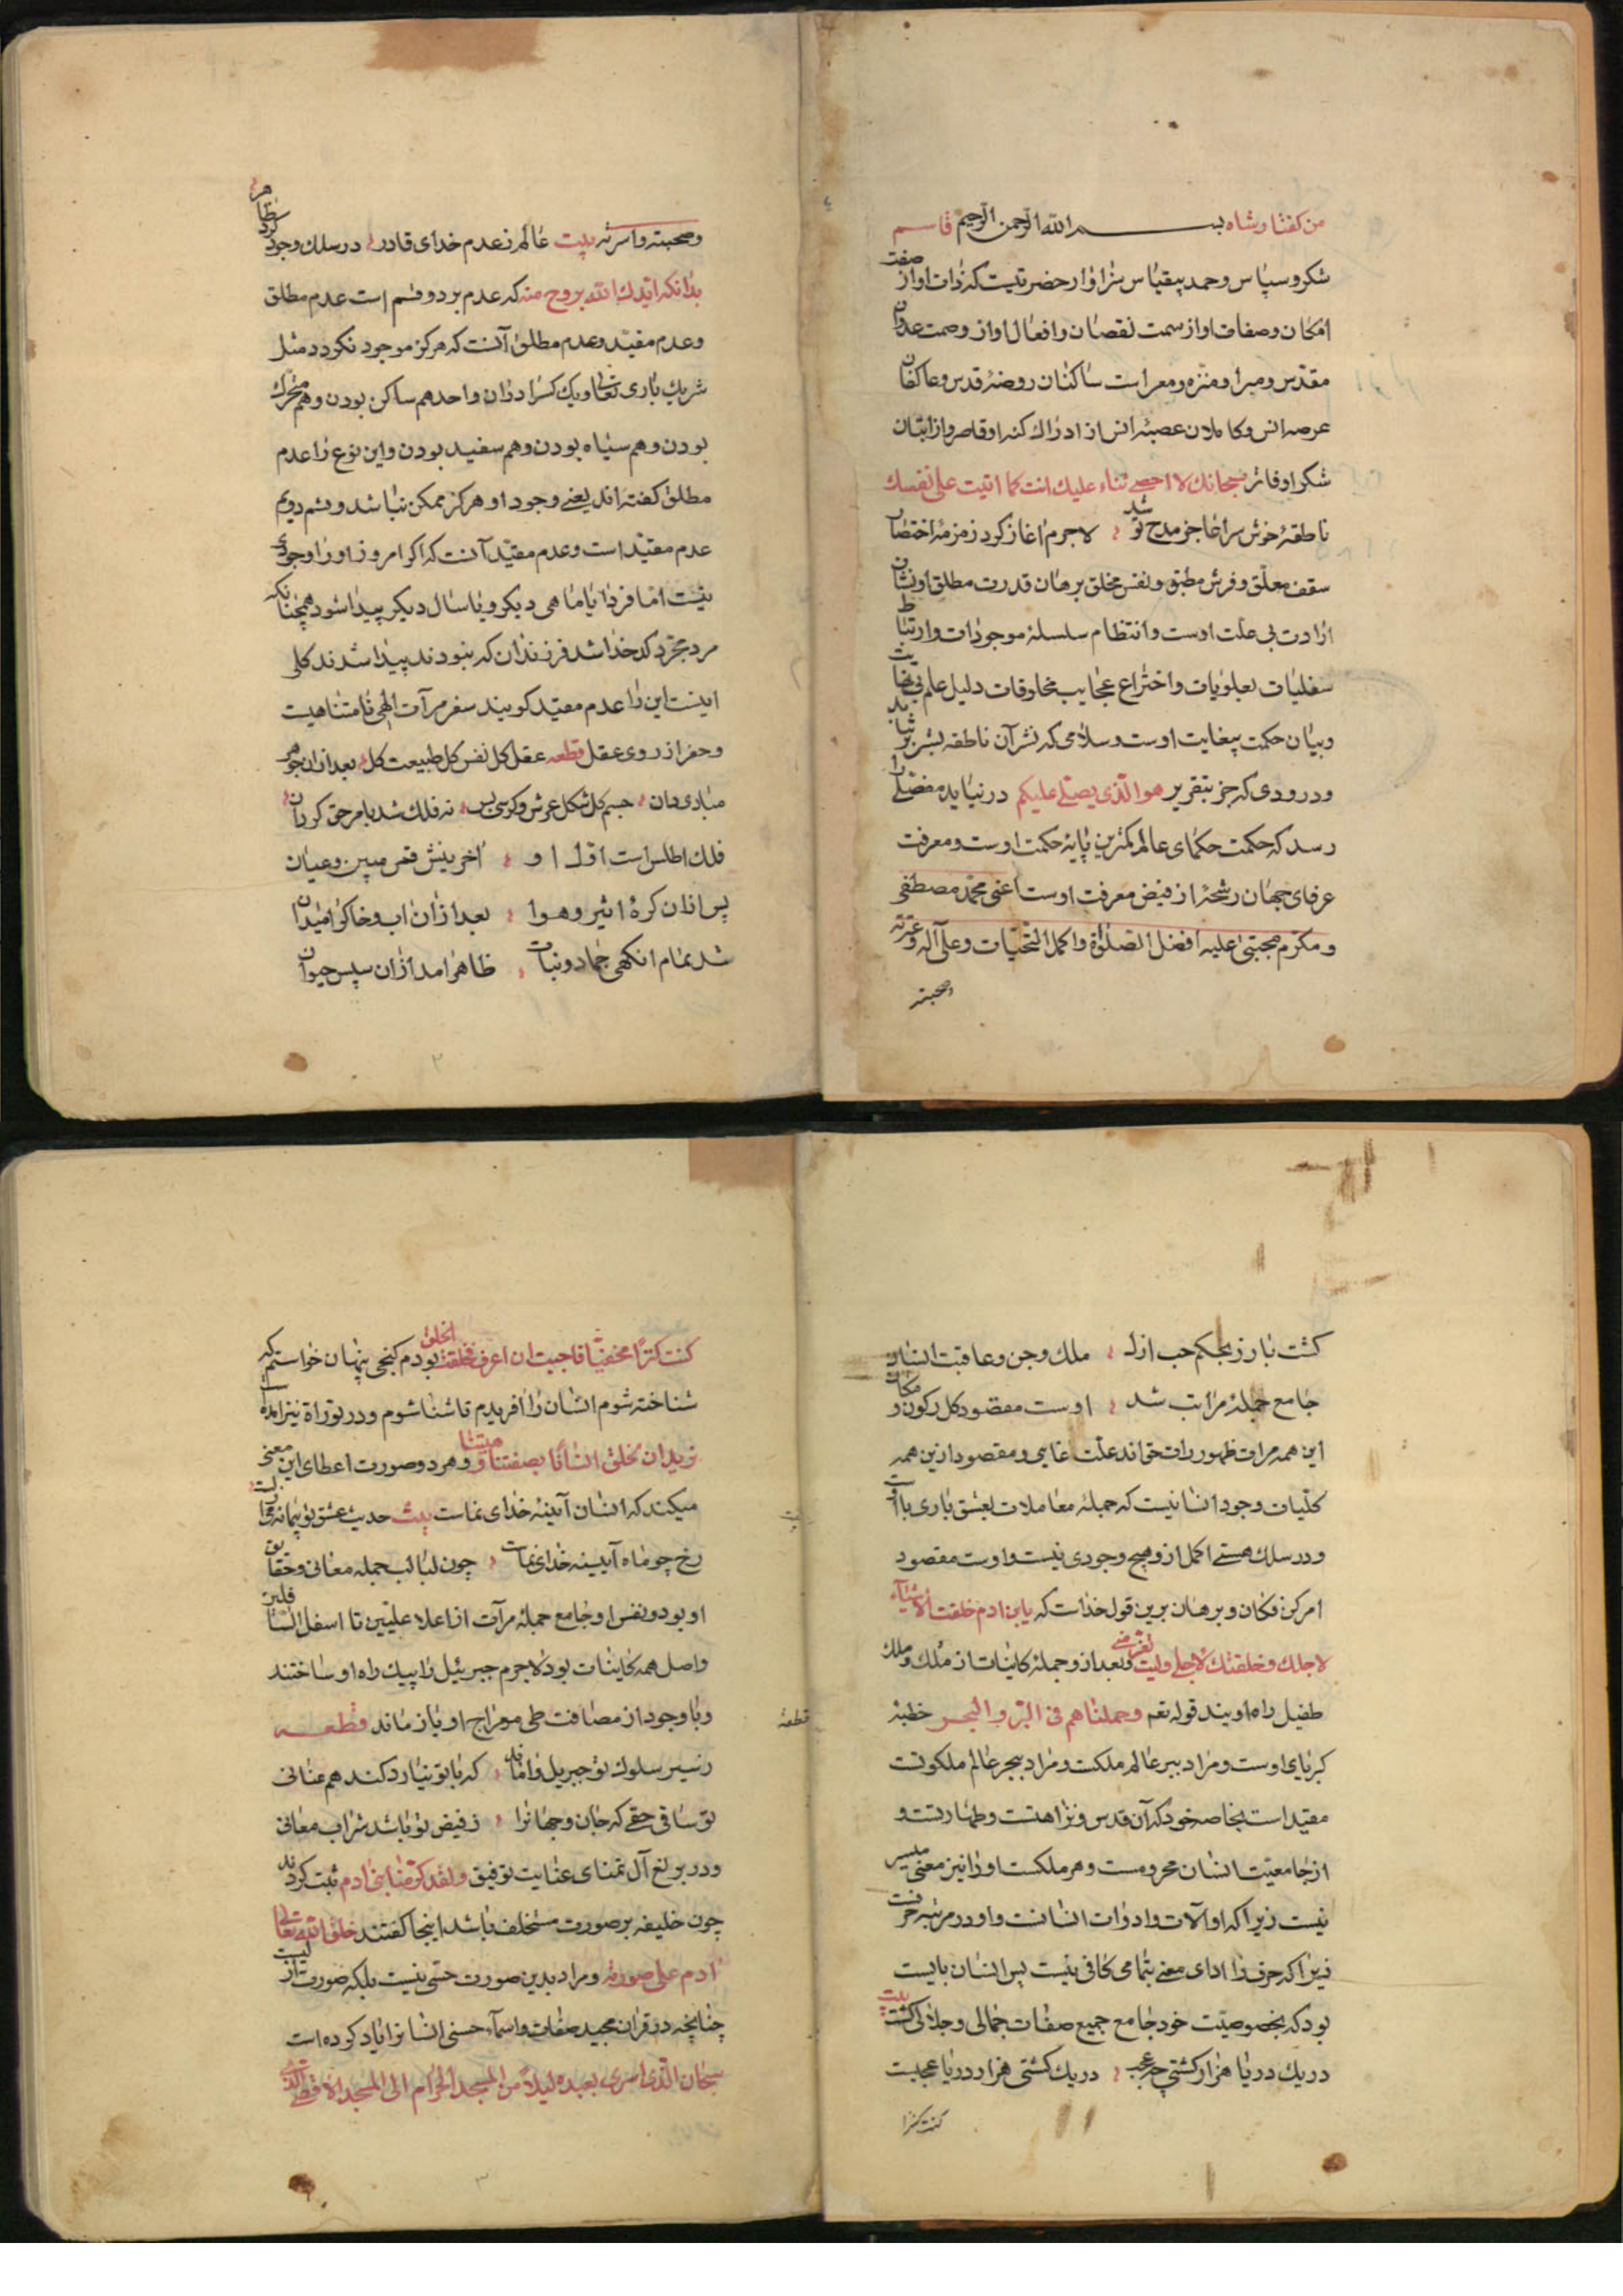 من گفتار شاه بسم الله الرحمن الرحیم قاسم
شکر و سپاس و حمد بیقیاس سزاوار حضرتیست که ذات او از صفت
امکان و صفات او از سمت نقصان و افعال او از وصمت عدوان
مقدس و مبرا و منزه و معراست ساکنان روضهٔ قدس و عاکفان
عرصه انس و کاملان عصبهٔ انس از ادراک کنه او قاصر و از اتیان
شکر او فاتر سبحانك لا احصی ثناء علیك انت کما اثنیت علی نفسك
ناطقهٔ خوش سرا عاجز مدح تو شد لاجرم اغاز کرد زمزمهٔ اختصار
سقف معلق و فرش مطبق و نفس مخلق برهان قدرت مطلق او نشان
ارادت بی علت اوست و انتظام سلسلهٔ موجودات و ارتباط
سفلیات بعلویات و اختراع عجایب مخلوقات دلیل علم بی نهایت
و بیان حکمت بیغایت اوست و سلامی که نشر آن ناطقه بشر بر نتابد
و درودی که جز بتقریر هو الذی یصلی علیکم در نیاید مفضلی را
رسد که حکمت حکمای عالم کمترین پایهٔ حکمت اوست و معرفت
عرفای جهان رشحهٔ از فیض معرفت اوست اعنی محمد مصطفی
و مکرم مجتبی علیه افضل الصلوة و اکمل التحیات و علی آله و عترته
وصحبته
وصحبته و اسرته بیت عالم ز عدم خدای قادر در سلك وجود کرد ظاهر
بدانکه ایدك الله بروح منه که عدم بر دو قسم است عدم مطلق
و عدم مقید و عدم مطلق آنست که هرکز موجود نکردد مثل
شریك باری تعالی و یك کس را در ان واحد هم ساکن بودن و هم متحرك
بودن و هم سیاه بودن و هم سفید بودن و این نوع را عدم
مطلق کفته اند یعنی وجود او هرکز ممکن نباشد و قسم دویم
عدم مقید است و عدم مقید آنست که اکر امروز او را وجودی
نیست اما فردا یا ماهی دیکر و یا سال دیکر پیدا شود همچنانکه
مرد مجرد کدخدا شد فرزندان که نبودند پیدا شدند کلی
اینست این را عدم مقید کویند سفر مرآت الهی نامتناهیست
و حفر از روی عقل قطعه عقل کل نفس کل طبیعت کل بعد ازان جوهر
مبادی دان جسم کل شکل عرش و کرسی بس نه فلك شد بامر حق کردان
فلك اطلس است اول او اخرینش قمر مبین و عیان
پس ازان کرهٔ اثیر و هوا بعد ازان اب و خاك را میدان
شد تمام انکهی جماد و نبات ظاهر امد ازان سپس حیوان
۲
کشت بارز بحکم حب ازل ملك و جن و عاقبت انسان
جامع جملهٔ مراتب شد اوست مقصود کل ز کون و مکان
این همه مرات ظهور ذات حق اند علت غایی و مقصود ازین همه
کلیات وجود انسانیست که جملهٔ معاملات بعشق بازی با اوست
و در سلك هستی اکمل ازو هیچ وجودی نیست و اوست مقصود
امر کن فکان و برهان برین قول خداست که یابن ادم خلقت الاشیاء
لاجلك و خلقتك لاجلی و بعد ازو جملهٔ کاینات از ملك و ملك
طفیل راه اویند قوله تعه و حملناهم فی البر و البحر خطبهٔ
کبریای اوست و مراد ببر عالم ملکست و مراد ببحر عالم ملکوتست
مقید است بخاصه خود که آن قدس و نزاهتست و طهارتست و
از جامعیت انسان محرومست و هر ملکست او را نیز معنی میسر
نیست زیرا که او آلات و ادوات انسانست و او در مرتبه حرفست
زیرا که حرف را ادای معنی بتمامی کافی نیست پس انسان بایست
بود که بخصوصیت خود جامع جمیع صفات جمالی و جلالی کشت بیت
در یك دریا هزار کشتی چه عجب در یك کشتی هزار دریا عجبست
کنت کنزا
کنت کنزا مخفیا فاحببت ان اعرف فخلقت الخلق بودم کنجی پنهان خواستم که
شناخته شوم انسان را افریدم تا شناشا شوم و در توراة نیز امده
نرید ان نخلق انسانا بصفتنا و هیئتنا و هر دو صورت اعطای این معنی
میکند که انسان آیینهٔ خدای نماست بیت حدیث عشق تو پیمانه
رخ چو ماه آیینه خدای نماست چون لبالب جمله معانی و حقایق
او بود و نفس او جامع جملهٔ مرآت از اعلا علیین تا اسفل السافلین
واصل همه کاینات بود لاجرم جبرییل را پیك راه او ساختند
و با وجود از مصافت طی معراج او باز ماند قطعه
ز سیر سلوك تو جبریل واماند که با تو نیارد کند هم عنانی
تو ساقی حقی که جان و جهانرا ز فیض تو باشد شراب معانی
و در برلغ آل تمنای عنایت توفیق و لقد کرمنا بنی ادم ثبت کردند
چون خلیفه بر صورت مستخلف باشد اینجا کفتند خلق الله تعالی
ادم علی صورته و مراد بدین صورت حسی نیست بلکه صورت
چنانچه در قران مجید صفات و اسماء حسنی انسانرا یاد کرده است
سبحان الذی اسری بعبده لیلا من المسجد الحرام الی المسجد الاقصی الذی
۳